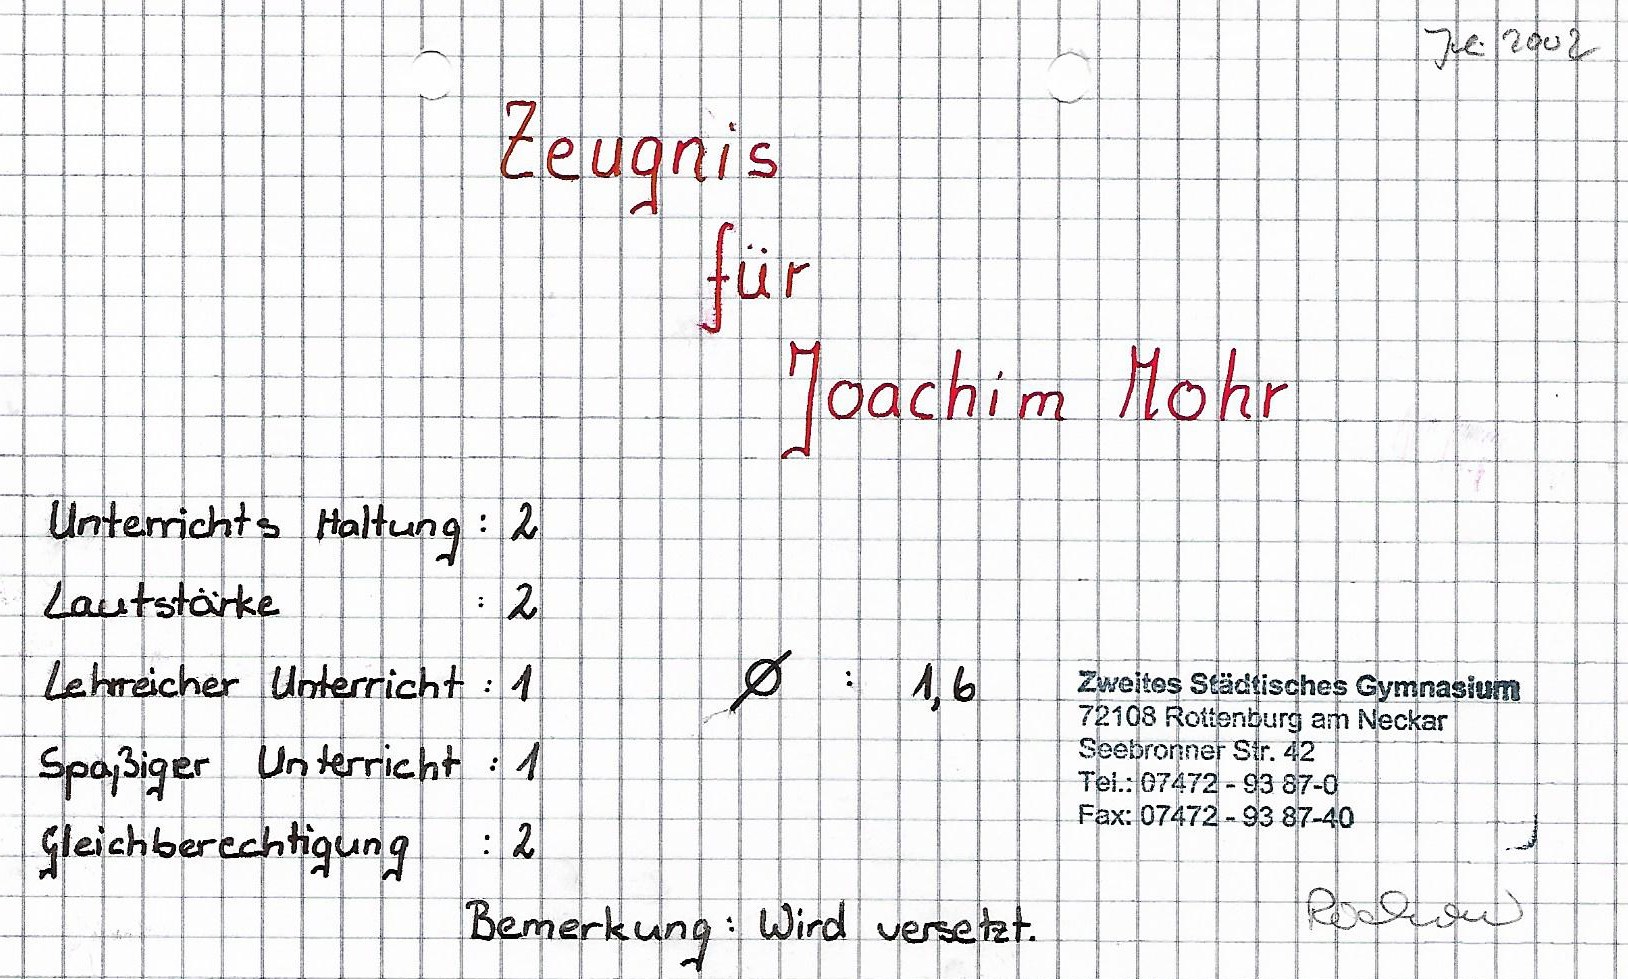 2002
Zeugnis
für
Joachim Mohr
Unterrichts Haltung : 2
Lautstärke : 2
Lehrreicher Unterricht : 1
Ø : 1,6
Spaßiger Unterricht : 1
Gleichberechtigung : 2
Zweites Städtisches Gymnasium
72108 Rottenburg am Neckar
Seebronner Str. 42
Tel.: 07472 - 93 87-0
Fax: 07472 - 93 87-40
Bemerkung : Wird versetzt.